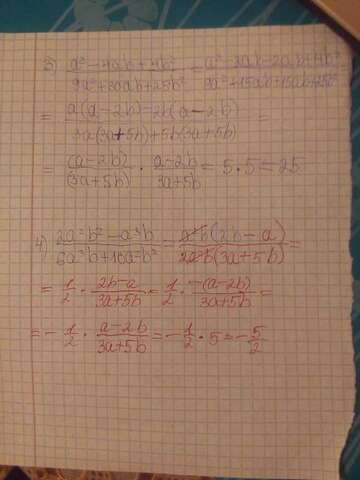 3) (a²-4ab+4b²)/(9a²+30ab+25b²) = (a²-2ab-2ab+4b²)/(9a²+15ab+15ab+25b²)
= (a(a-2b)-2b(a-2b))/(3a(3a+5b)+5b(3a+5b)) =
= (a-2b)/(3a+5b) · (a-2b)/(3a+5b) = 5·5 = 25
4) (2a²b²-a³b)/(6a³b+10a²b²) = (a²b(2b-a))/(2a²b(3a+5b)) =
= 1/2 · (2b-a)/(3a+5b) = 1/2 · (-(a-2b))/(3a+5b) =
= -1/2 · (a-2b)/(3a+5b) = -1/2 · 5 = -5/2